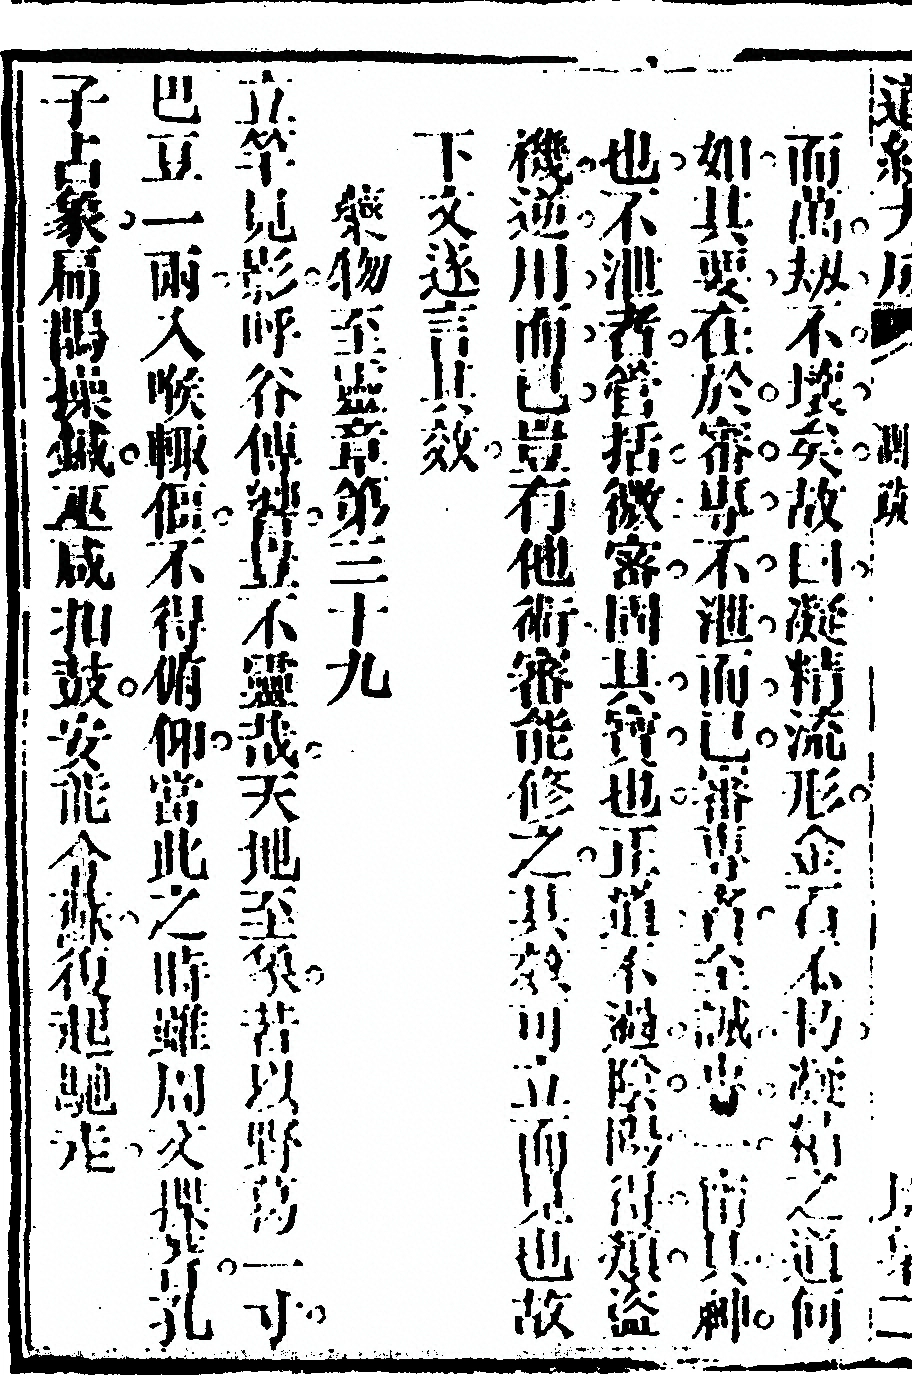 測疏
而萬劫不壞矣故曰凝精流形金石不朽凝精之道何
如其要在於審專不泄而已審專者至誠專一密其神
也不泄者管括微密固其寶也正道不過陰陽得類盜
機逆用而已豈有他術審能修之其效可立而見也故
下文遂言其效
藥物至靈章第三十九
立竿見影呼谷傳響豈不靈哉天地至象若以野葛一寸
巴豆一兩入喉輒僵不得俯仰當此之時雖周文揲蓍孔
子占象扁鵲操鍼巫咸扣鼓安能令蘇復起馳走